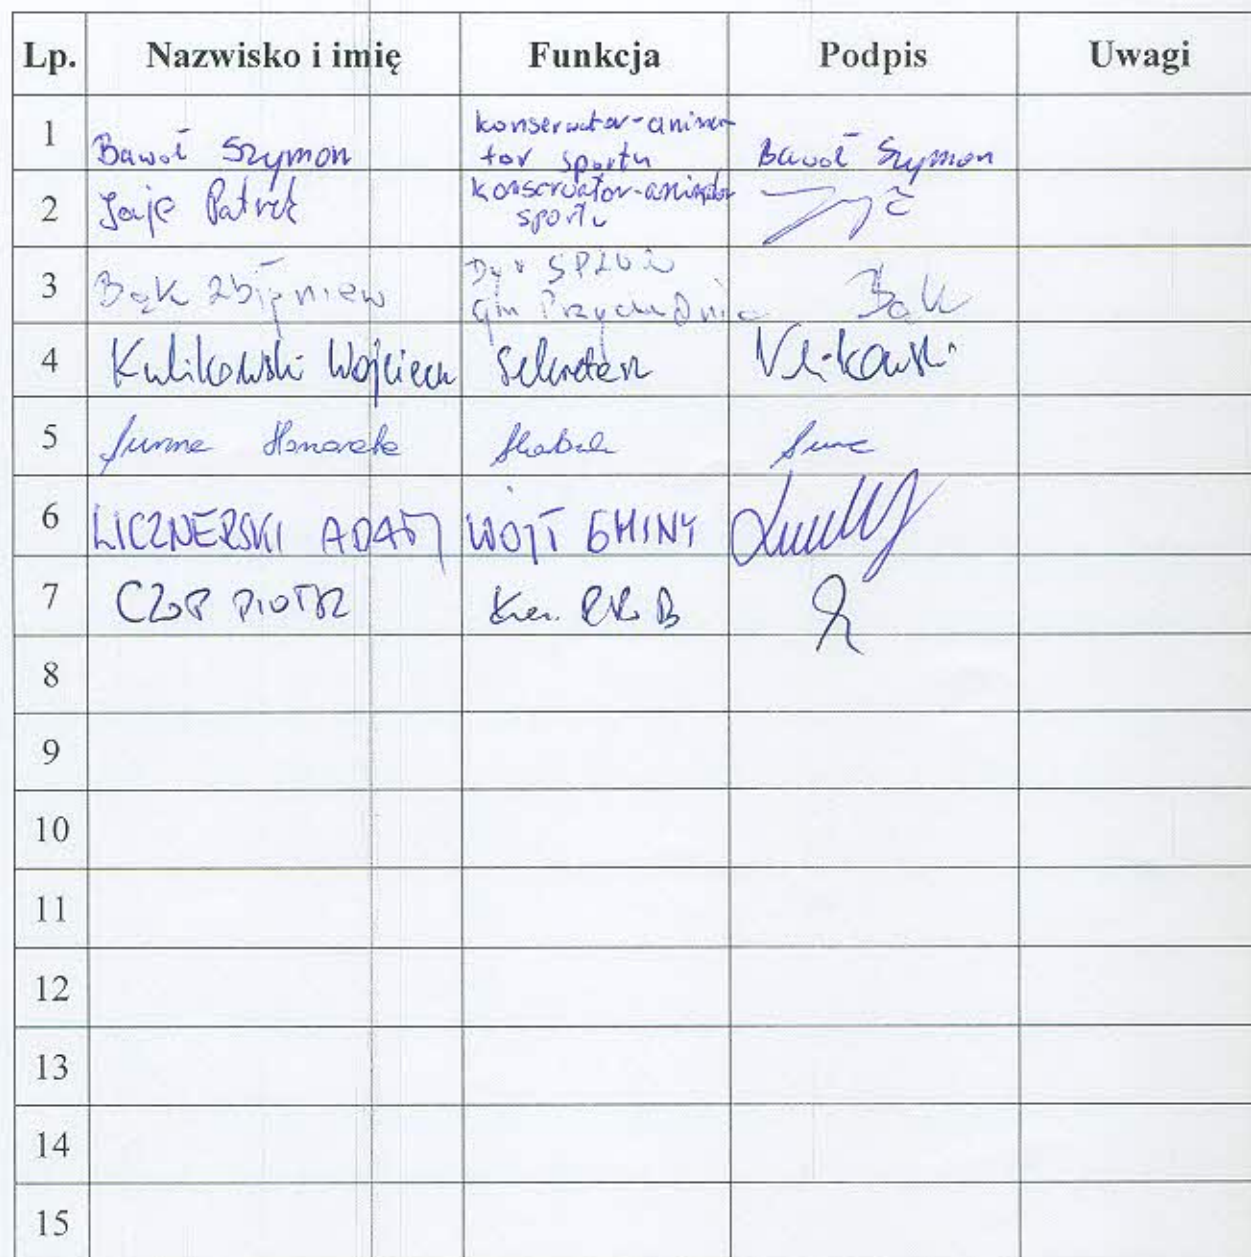 Lp. Nazwisko i imię Funkcja Podpis Uwagi
1 Bawoł Szymon konserwator-anima
tor sportu Bawoł Szymon
2 Patryk konserwator-animator
sportu
3 Bąk Zbigniew Dyr SPZOZ
Gm Przychodnia Bąk
4 Kulikowski Wojciech Sekretarz Kulikowski
5 Honorata Skarbnik
6 LICZNERSKI ADAM WÓJT GMINY
7 CZOP PIOTR Kier.
8
9
10
11
12
13
14
15